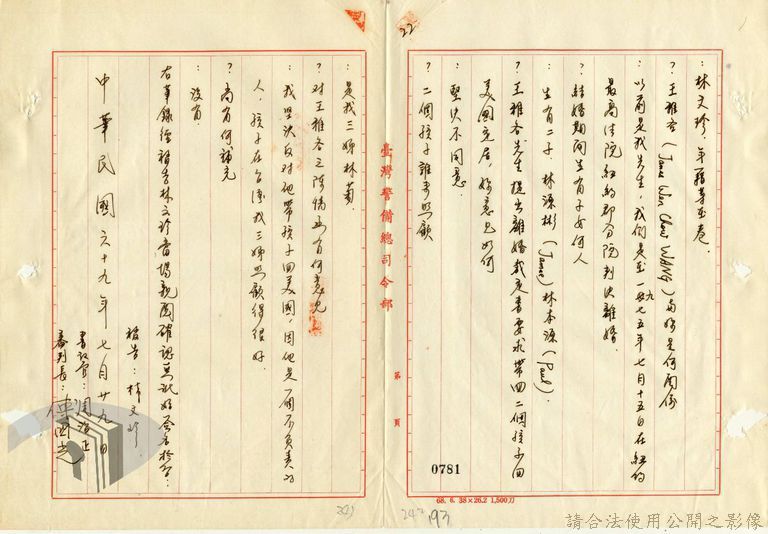 ：林文珍．年籍等在卷．
？王雅各（James Wen Chou WANG）與妳是何關係
：以前是我先生，我們是在一九七五年七月十五日在紐約
最高法院紐約郡分院判決離婚．
？結婚期間生有子女何人
：生有二子，林源彬（James）林本源（Paul）．
？王雅各先生提出離婚裁定書要求帶回二個孩子回
美國定居，妳意見如何
：堅決不同意．
？二個孩子誰在照顧
22
0781
第　頁
68. 6. 38×26.2 1,500刀
臺灣警備總司令部
：是我三姊林菊．
？对王雅各之陳情函有何意見
：我坚決反对他帶孩子回美國，因他是一個不負責的
人，孩子在台灣我三姊照顧得很好．
？尚有何補充
：沒有．
右筆錄經被告林文珍當場親閱確認無訛始簽名於后：
被告：林文珍．
中華民國六十九年七月廿九日
書記官：
審判長：
193
請合法使用公開之影像